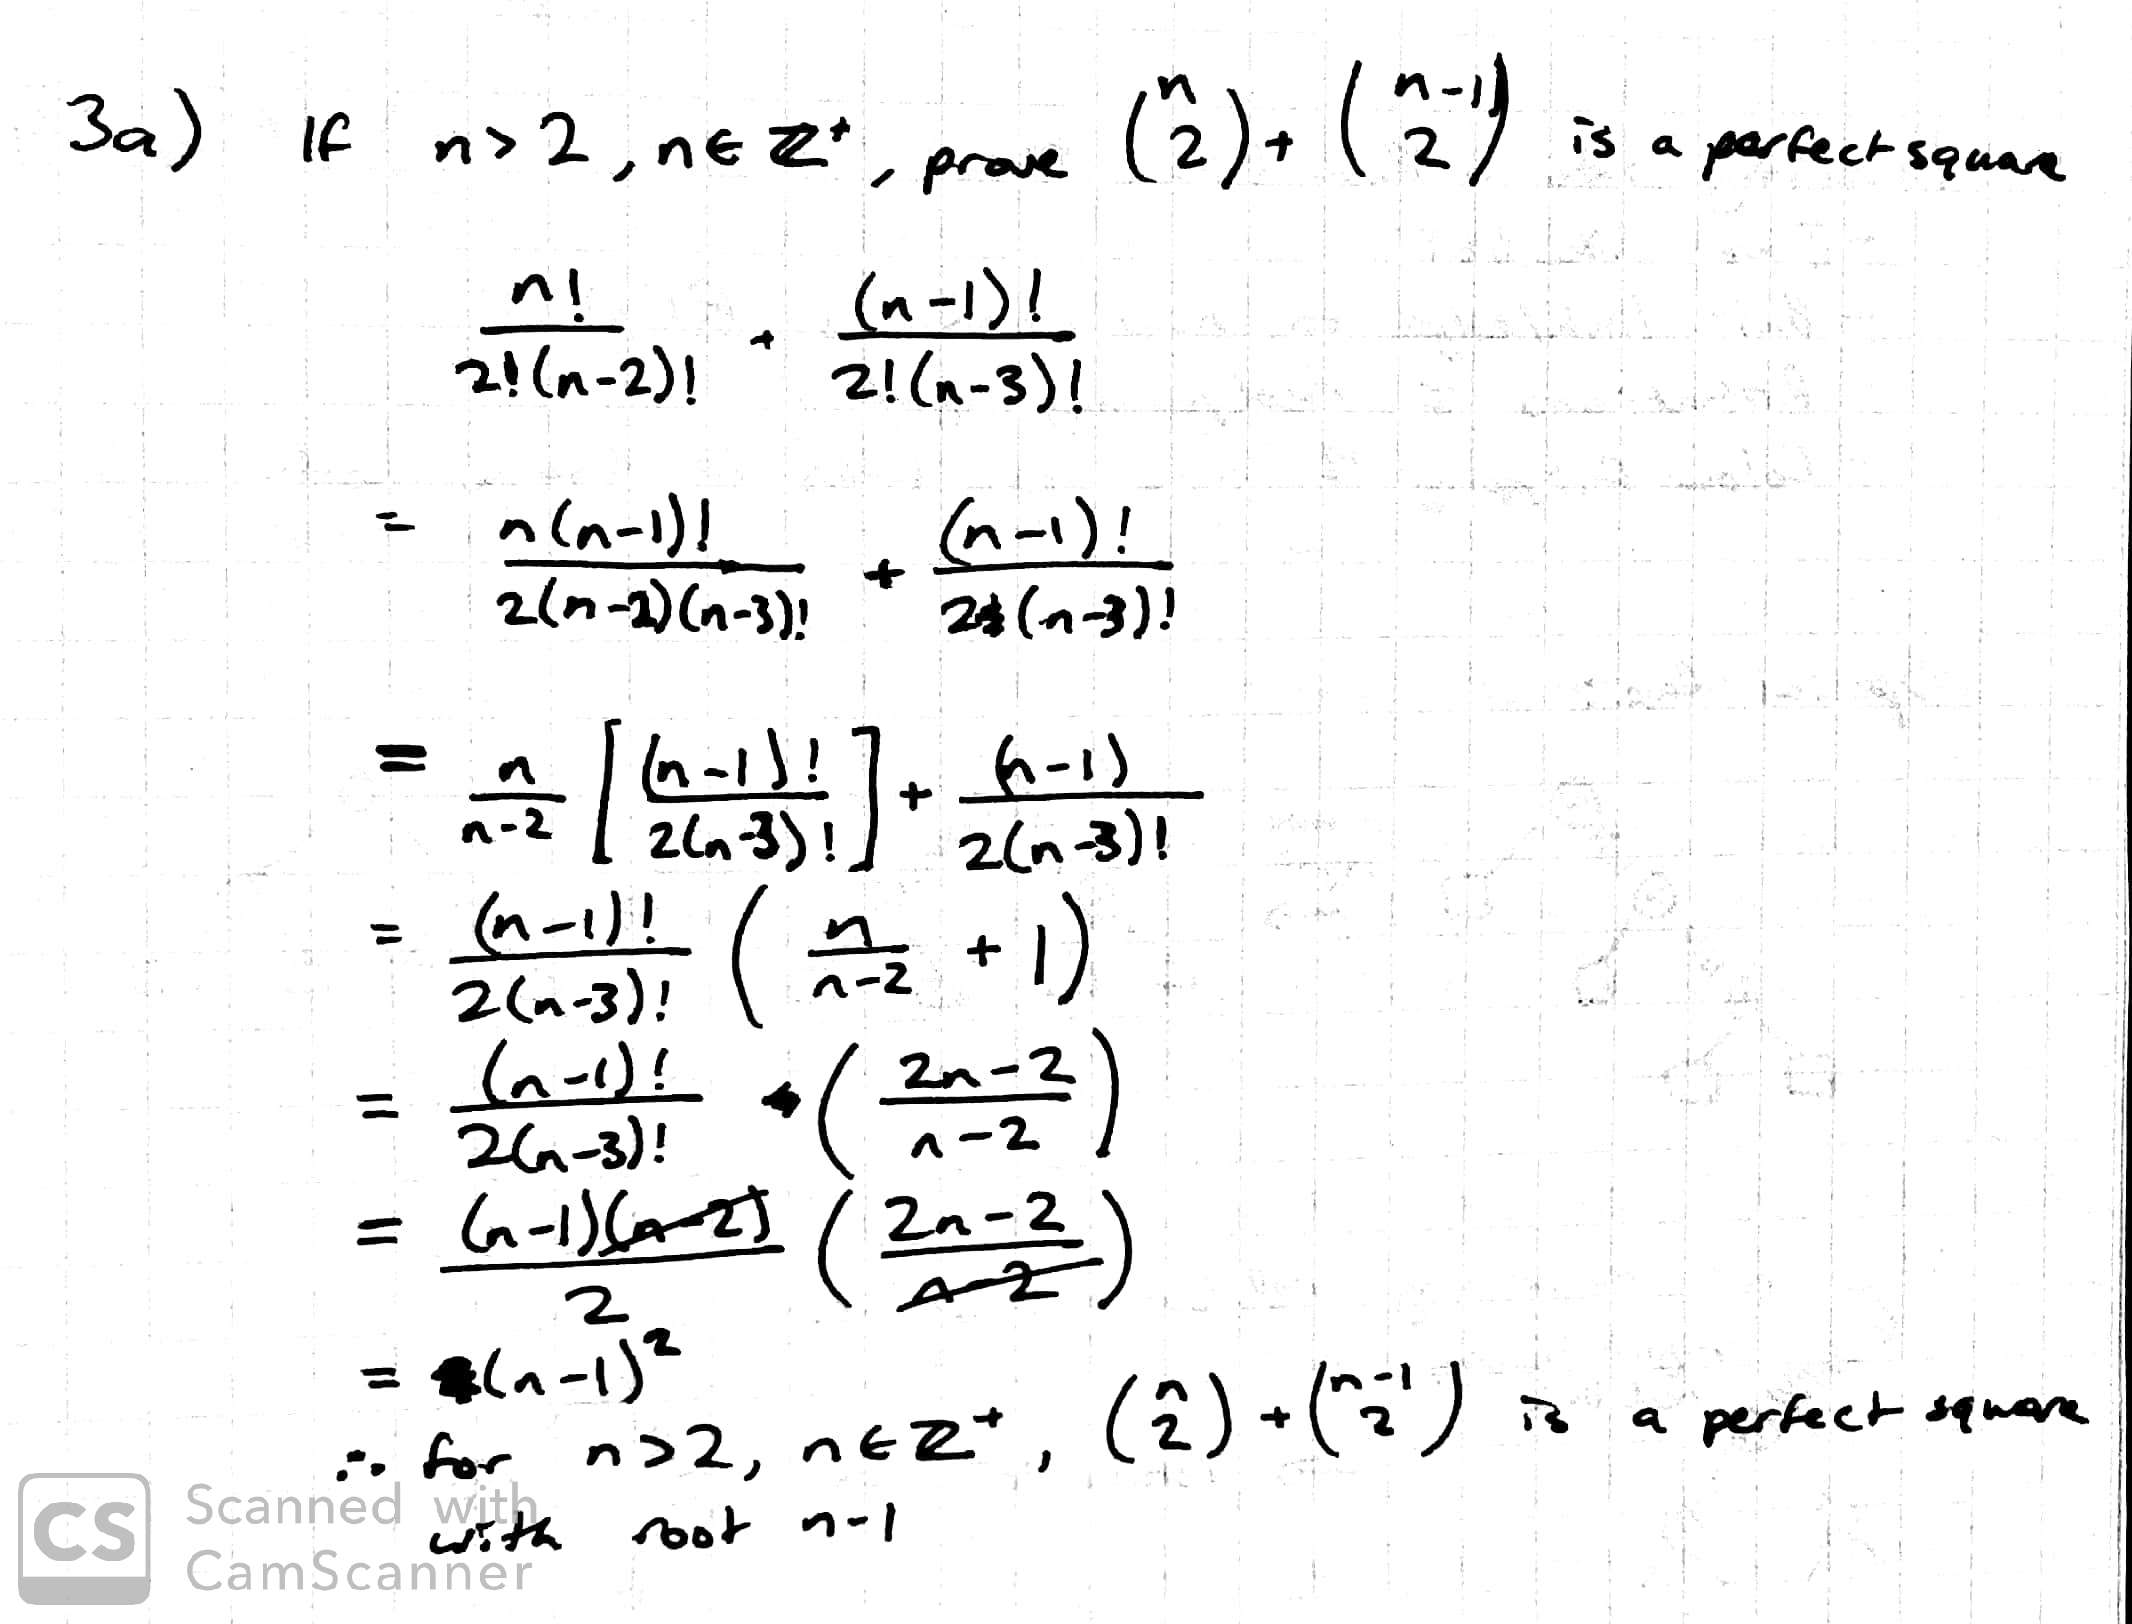 3a) If n>2, n∈ℤ⁺, prove (n 2) + (n-1 2) is a perfect square
n!/2!(n-2)! + (n-1)!/2!(n-3)!
= n(n-1)!/2(n-2)(n-3)! + (n-1)!/2(n-3)!
= n/n-2 [(n-1)!/2(n-3)!] + (n-1)/2(n-3)!
= (n-1)!/2(n-3)! (n/n-2 + 1)
= (n-1)!/2(n-3)! • (2n-2/n-2)
= (n-1)(n-2)/2 (2n-2/n-2)
= (n-1)²
∴ for n>2, n∈ℤ⁺, (n 2) + (n-1 2) is a perfect square
with root n-1
CS Scanned with
CamScanner